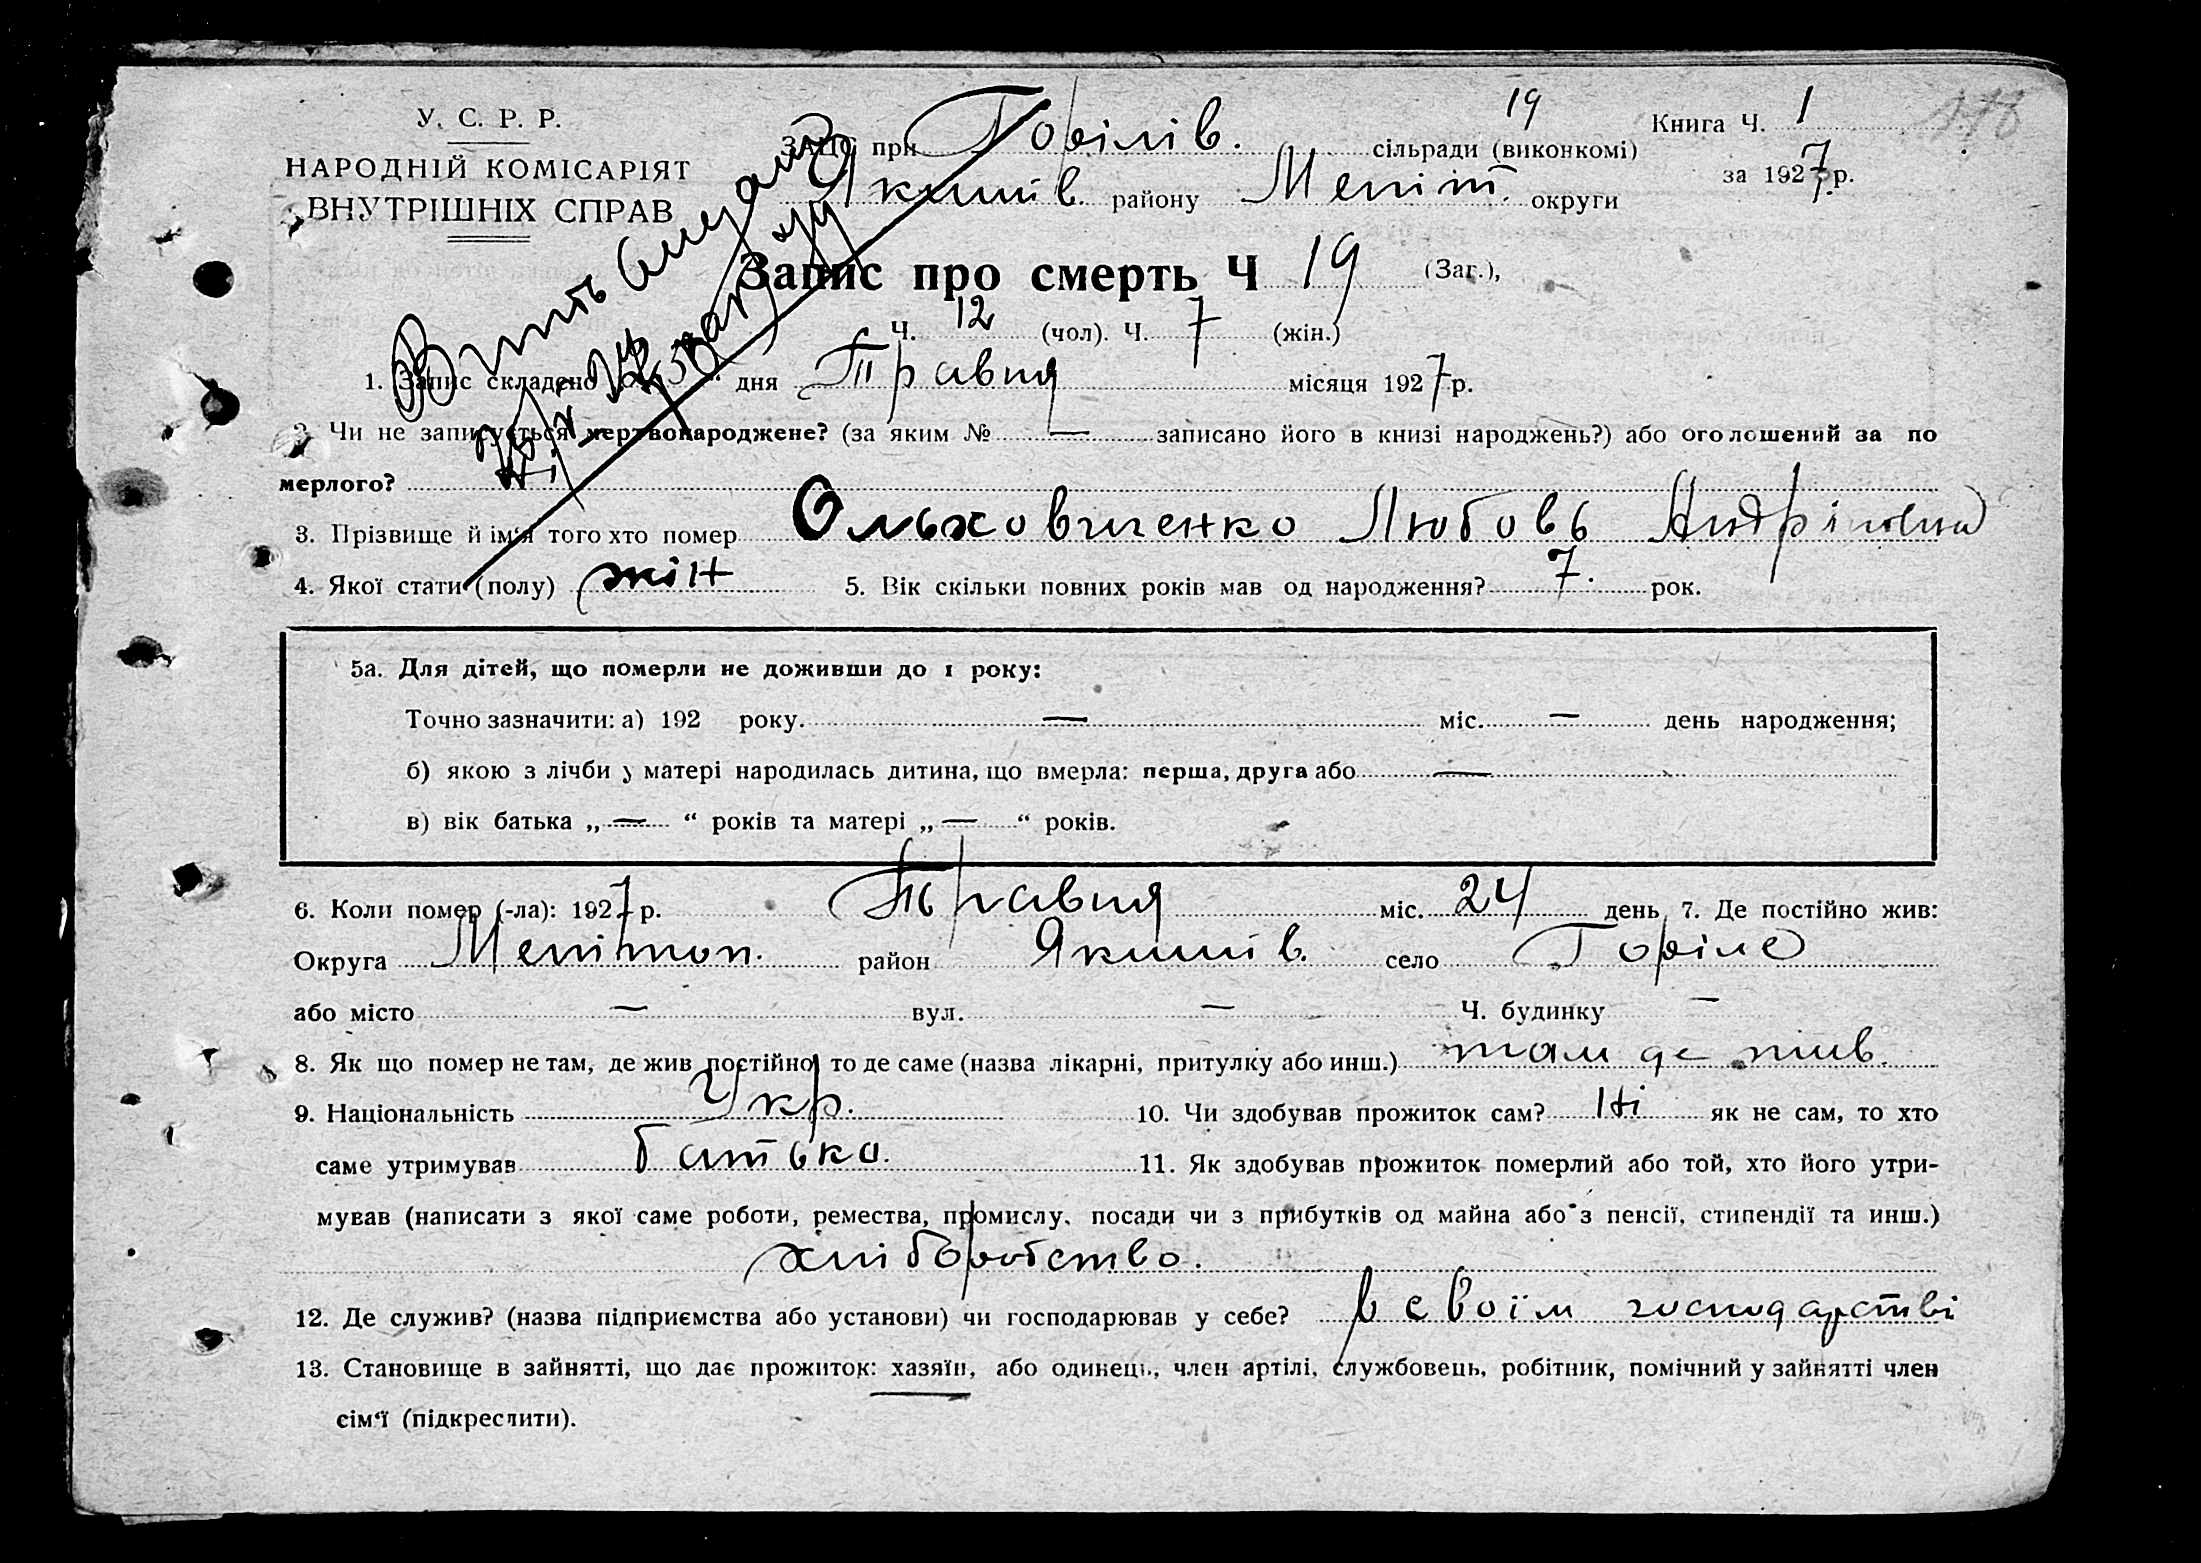 У. С. Р. Р.
НАРОДНІЙ КОМІСАРІЯТ
ВНУТРІШНІХ СПРАВ
19
ЗАГС при Горілів. сільради (виконкомі)
Якимів. району Меліт. округи
Книга Ч. 1
за 1927 р.
Запис про смерть Ч 19 (Заг.),
Ч. 12 (чол). Ч. 7 (жін.)
1. Запис складено дня Травня місяця 1927 р.
2. Чи не записується мертвонароджене? (за яким № — записано його в книзі народжень?) або оголошений за по
мерлого? Ні
3. Прізвище й ім'я того хто помер Ольховиченко Любовь
4. Якої стати (полу) жін 5. Вік скільки повних років мав од народження? 7. рок.
5а. Для дітей, що померли не доживши до 1 року:
Точно зазначити: а) 192 року. — міс. — день народження;
б) якою з лічби у матері народилась дитина, що вмерла: перша, друга або —
в) вік батька „ — “ років та матері „ — “ років.
6. Коли помер (-ла): 1927 р. Травня міс. 24 день 7. Де постійно жив:
Округа Мелітоп. район Якимів. село Горіле
або місто — вул. — Ч. будинку —
8. Як що помер не там, де жив постійно, то де саме (назва лікарні, притулку або инш.) там де жив.
9. Національність Укр. 10. Чи здобував прожиток сам? Ні як не сам, то хто
саме утримував батько. 11. Як здобував прожиток померлий або той, хто його утри-
мував (написати з якої саме роботи, ремества, промислу, посади чи з прибутків од майна або з пенсії, стипендії та инш.)
хліборобство.
12. Де служив? (назва підприємства або установи) чи господарював у себе? в своїм господарстві
13. Становище в зайнятті, що дає прожиток: хазяїн, або одинець, член артілі, службовець, робітник, помічний у зайнятті член
сім'ї (підкреслити).